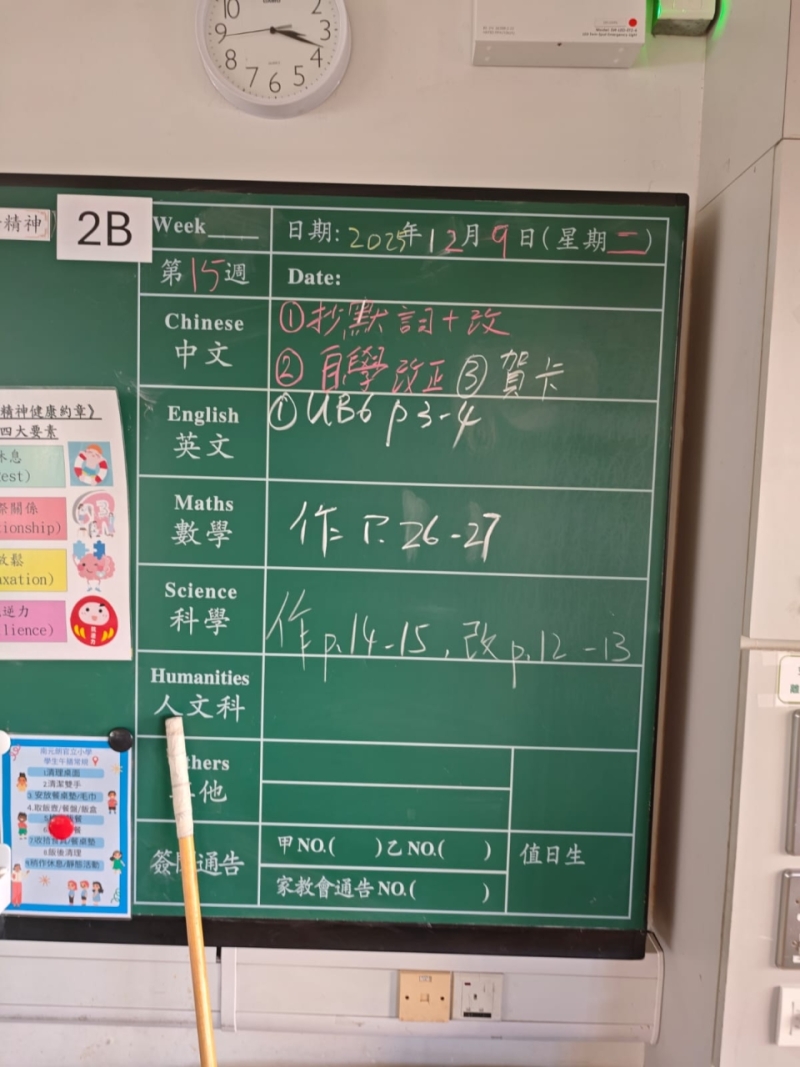 10
2
9
3
8
4
7
6
5
精神
2B
Week____
日期: 2025年12月9日(星期二)
第15週
Date:
Chinese
中文
①抄默詞+改
②自學改正 ③賀卡
English
英文
①UB6 p3-4
Maths
數學
作= P. 26-27
Science
科學
作p.14-15, 改p.12-13
Humanities
人文科
thers
他
簽 通告
甲NO.( )乙NO.( )
家教會通告NO.( )
值日生
精神健康約章》
四大要素
休息
est)
際關係
tionship)
放鬆
axation)
逆力
lience)
南元朗官立小學
學生午膳常規
1.清理桌面
2.清潔雙手
3.安放餐桌墊/毛巾
4.取飯壺/餐盤/飯盒
8.飯後清理
9.稍作休息/靜態活動